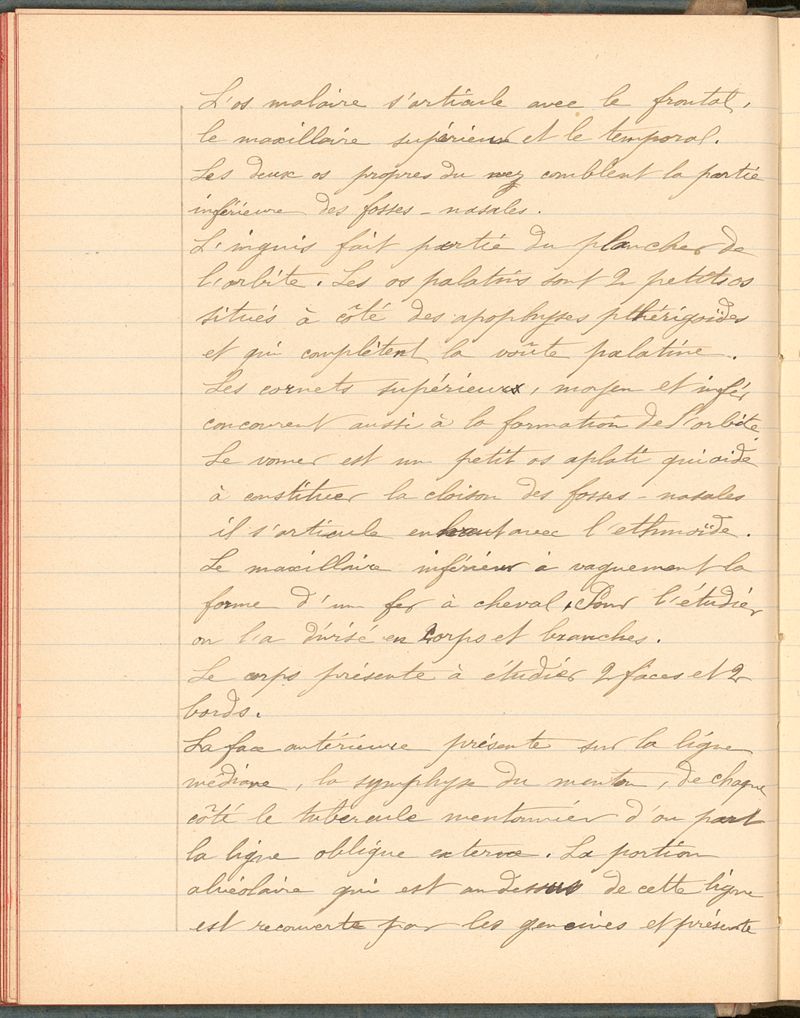 L'os malaire s'articule avec le frontal,
le maxillaire supérieur et le temporal.
Les deux os propres du nez comblent la partie
inférieure des fosses-nasales.
L'inguis fait partie du plancher de
l'orbite. Les os palatins sont 2 petits os
situés à côté des apophyses pthérigoïdes
et qui complètent la voûte palatine.
Les cornets supérieurs, moyen et infér
concourent aussi à la formation de l'orbite.
Le vomer est un petit os aplati qui aide
à constituer la cloison des fosses-nasales
il s'articule en haut avec l'ethmoïde.
Le maxillaire inférieur à vaguement la
forme d'un fer à cheval. Pour l'étudier
on l'a divisé en corps et branches.
Le corps présente à étudier 2 faces et 2
bords.
La face antérieure présente sur la ligne
médiane, la symphyse du menton, de chaque
côté le tubercule mentonnier d'ou part
la ligne oblique externe. La portion
alvéolaire qui est au dessus de cette ligne
est recouverte par les gencives et présente